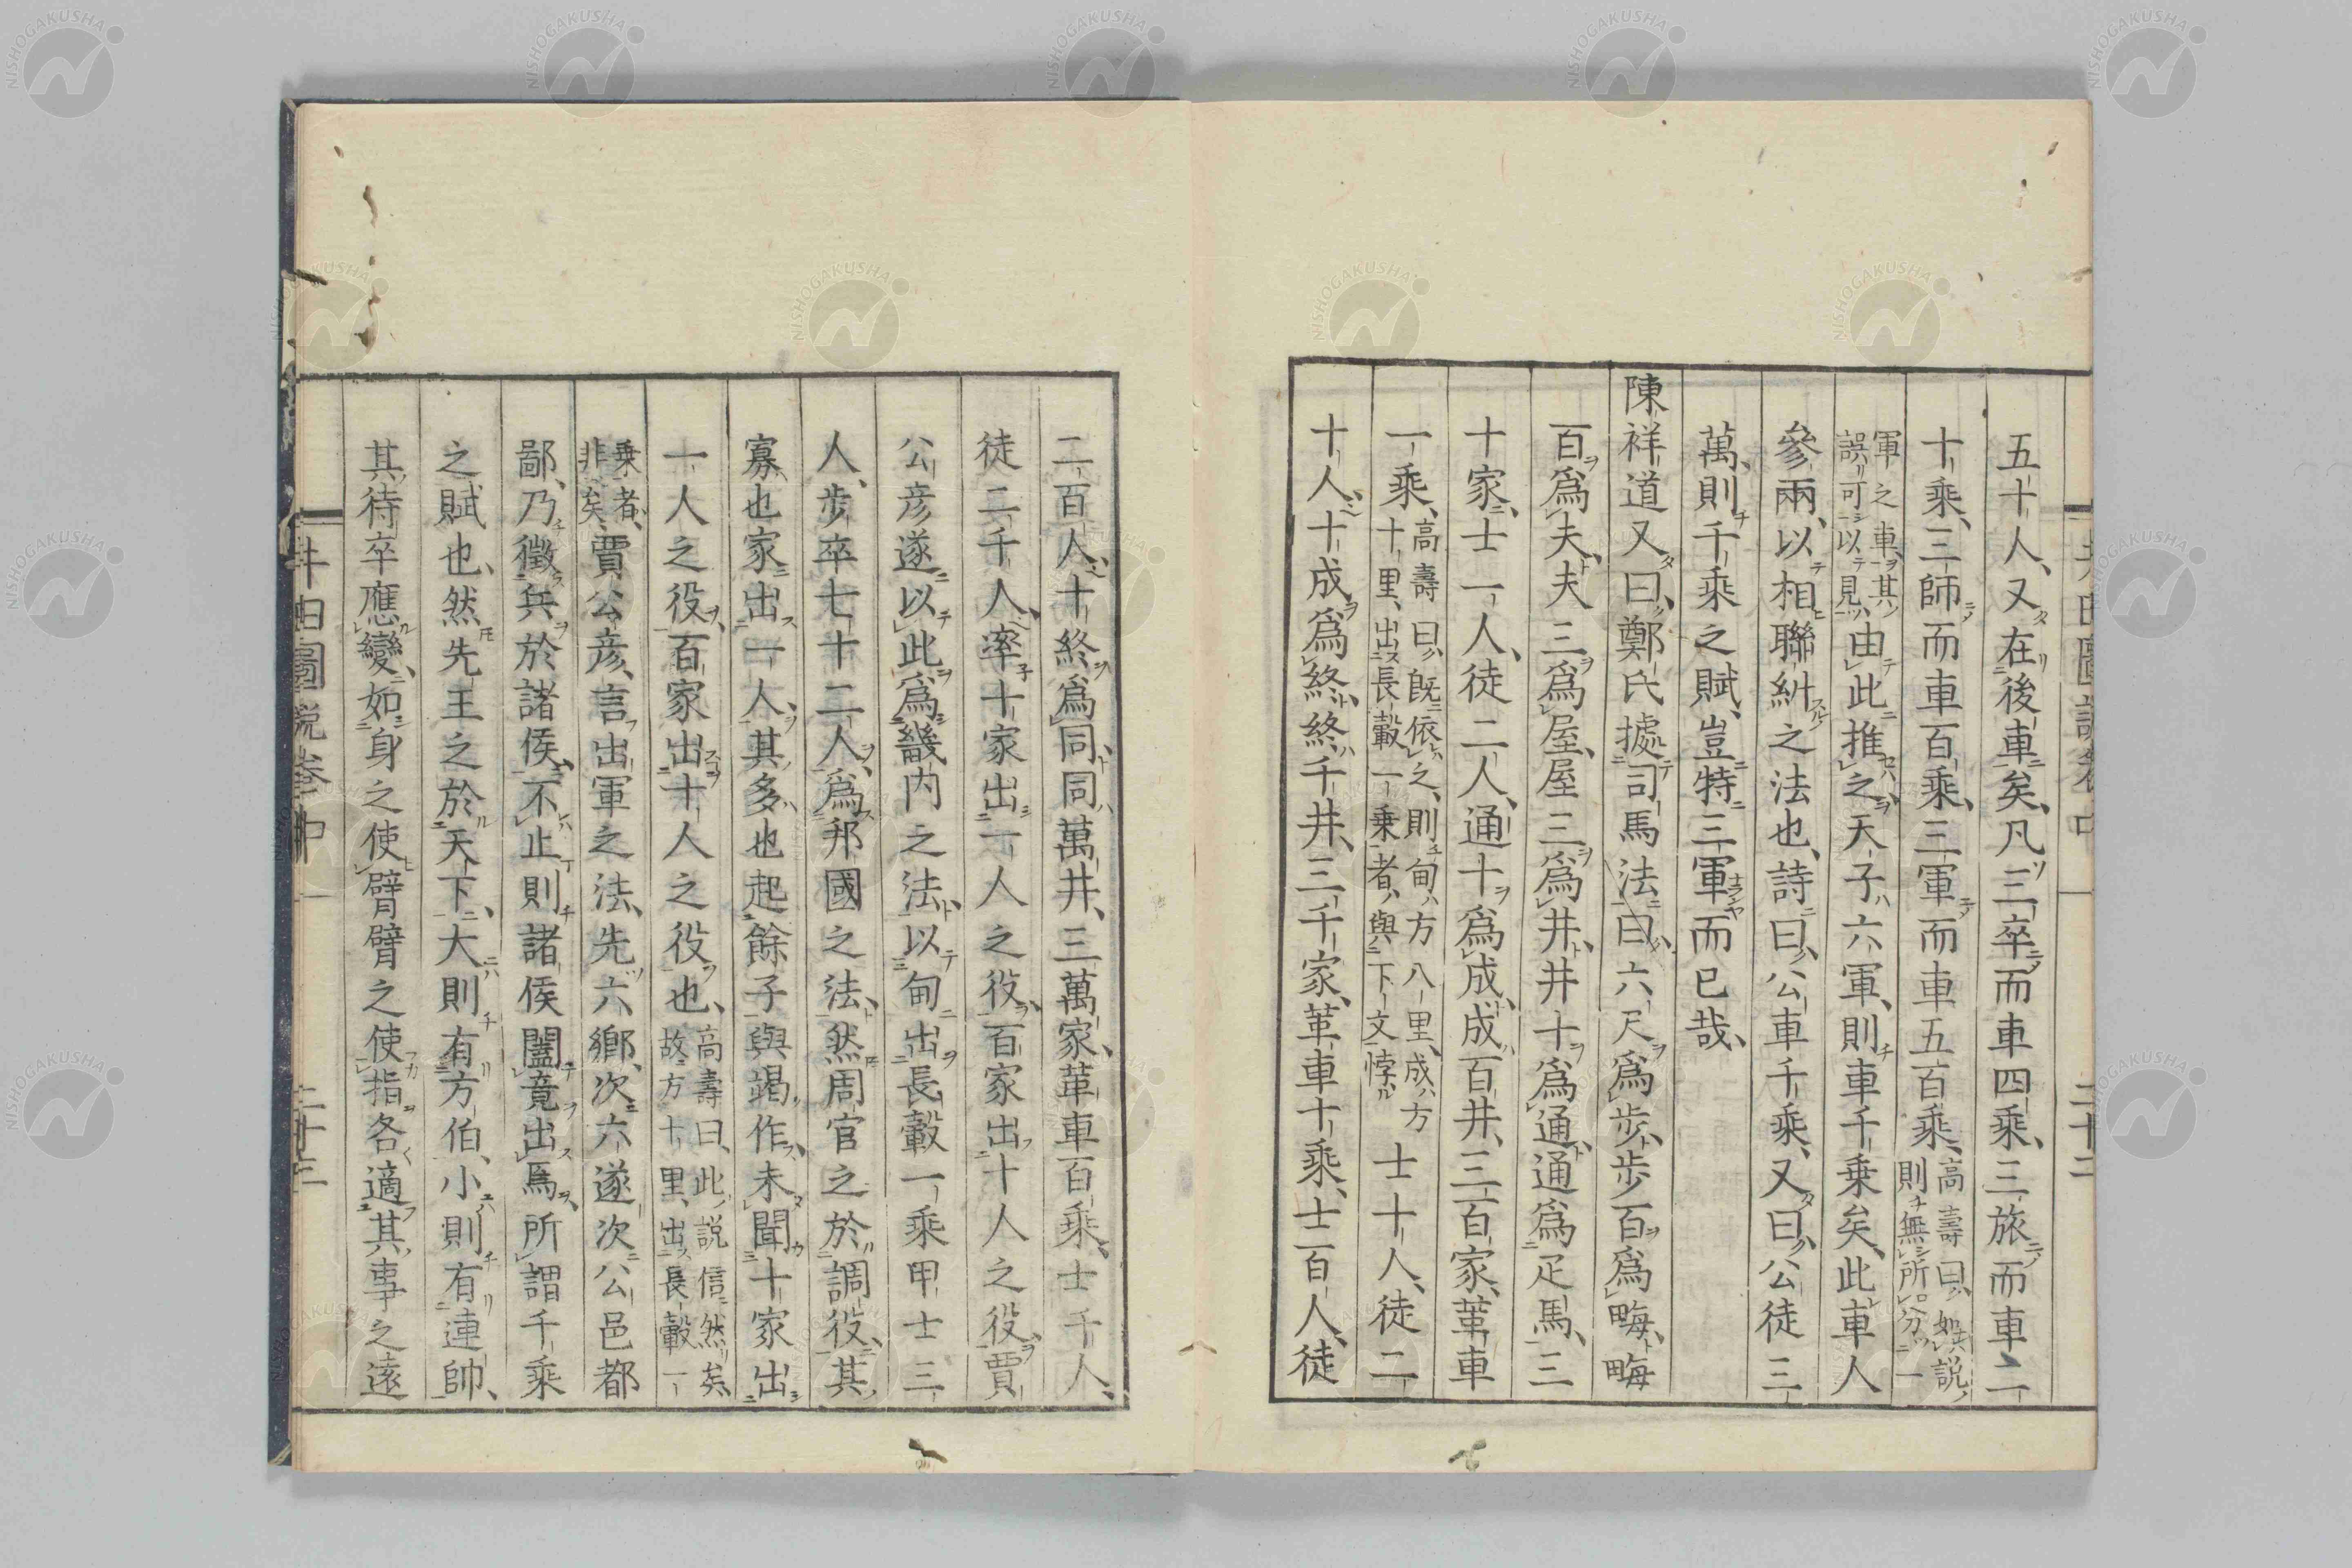 五十人、又在後車矣、凡三卒而車四乘、三旅而車二
十乘、三師而車百乘、三軍而車五百乘、高壽曰、如其説、則無所分一
軍之車、其誤可以見、由此推之、天子六軍、則車千乗矣、此車人
參兩、以相聯糾之法也、詩曰、公車千乘、又曰、公徒三
萬、則千乘之賦、豈特三軍而已哉、
陳祥道又曰、鄭氏據司馬法曰、六尺爲步、步百爲畮、畮
百爲夫、夫三爲屋、屋三爲井、井十爲通、通爲疋馬、三
十家、士一人、徒二人、通十爲成、成百井、三百家、革車
一乘、高壽曰、既依之、則甸方八里、成方十里、出長轂一乗者、與下文悖士十人、徒二
十人、十成爲終、終千井、三千家、革車十乘、士百人、徒
二百人、十終爲同、同萬井、三萬家、革車百乘、士千人、
徒二千人、率十家出一人之役、百家出十人之役、賈
公彦遂以此爲畿内之法、以甸出長轂一乘甲士三
人、步卒七十二人、爲邦國之法、然周官之於調役、其
寡也家出一人、其多也起餘子與竭作、未聞十家出
一人之役、百家出十人之役也、高壽曰、此説信然矣、故方十里、出長轂一
乗者、非矣、賈公彦、言出軍之法、先六鄉、次六遂次公邑都
鄙、乃徵兵於諸侯、不止則諸侯闔竟出焉、所謂千乘
之賦也、然先王之於天下、大則有方伯、小則有連帥、
其待卒應變、如身之使臂臂之使指各適其事之遠
井田圖説卷中
二十二
井田圖説卷中
二十三
NISHOGAKUSHA